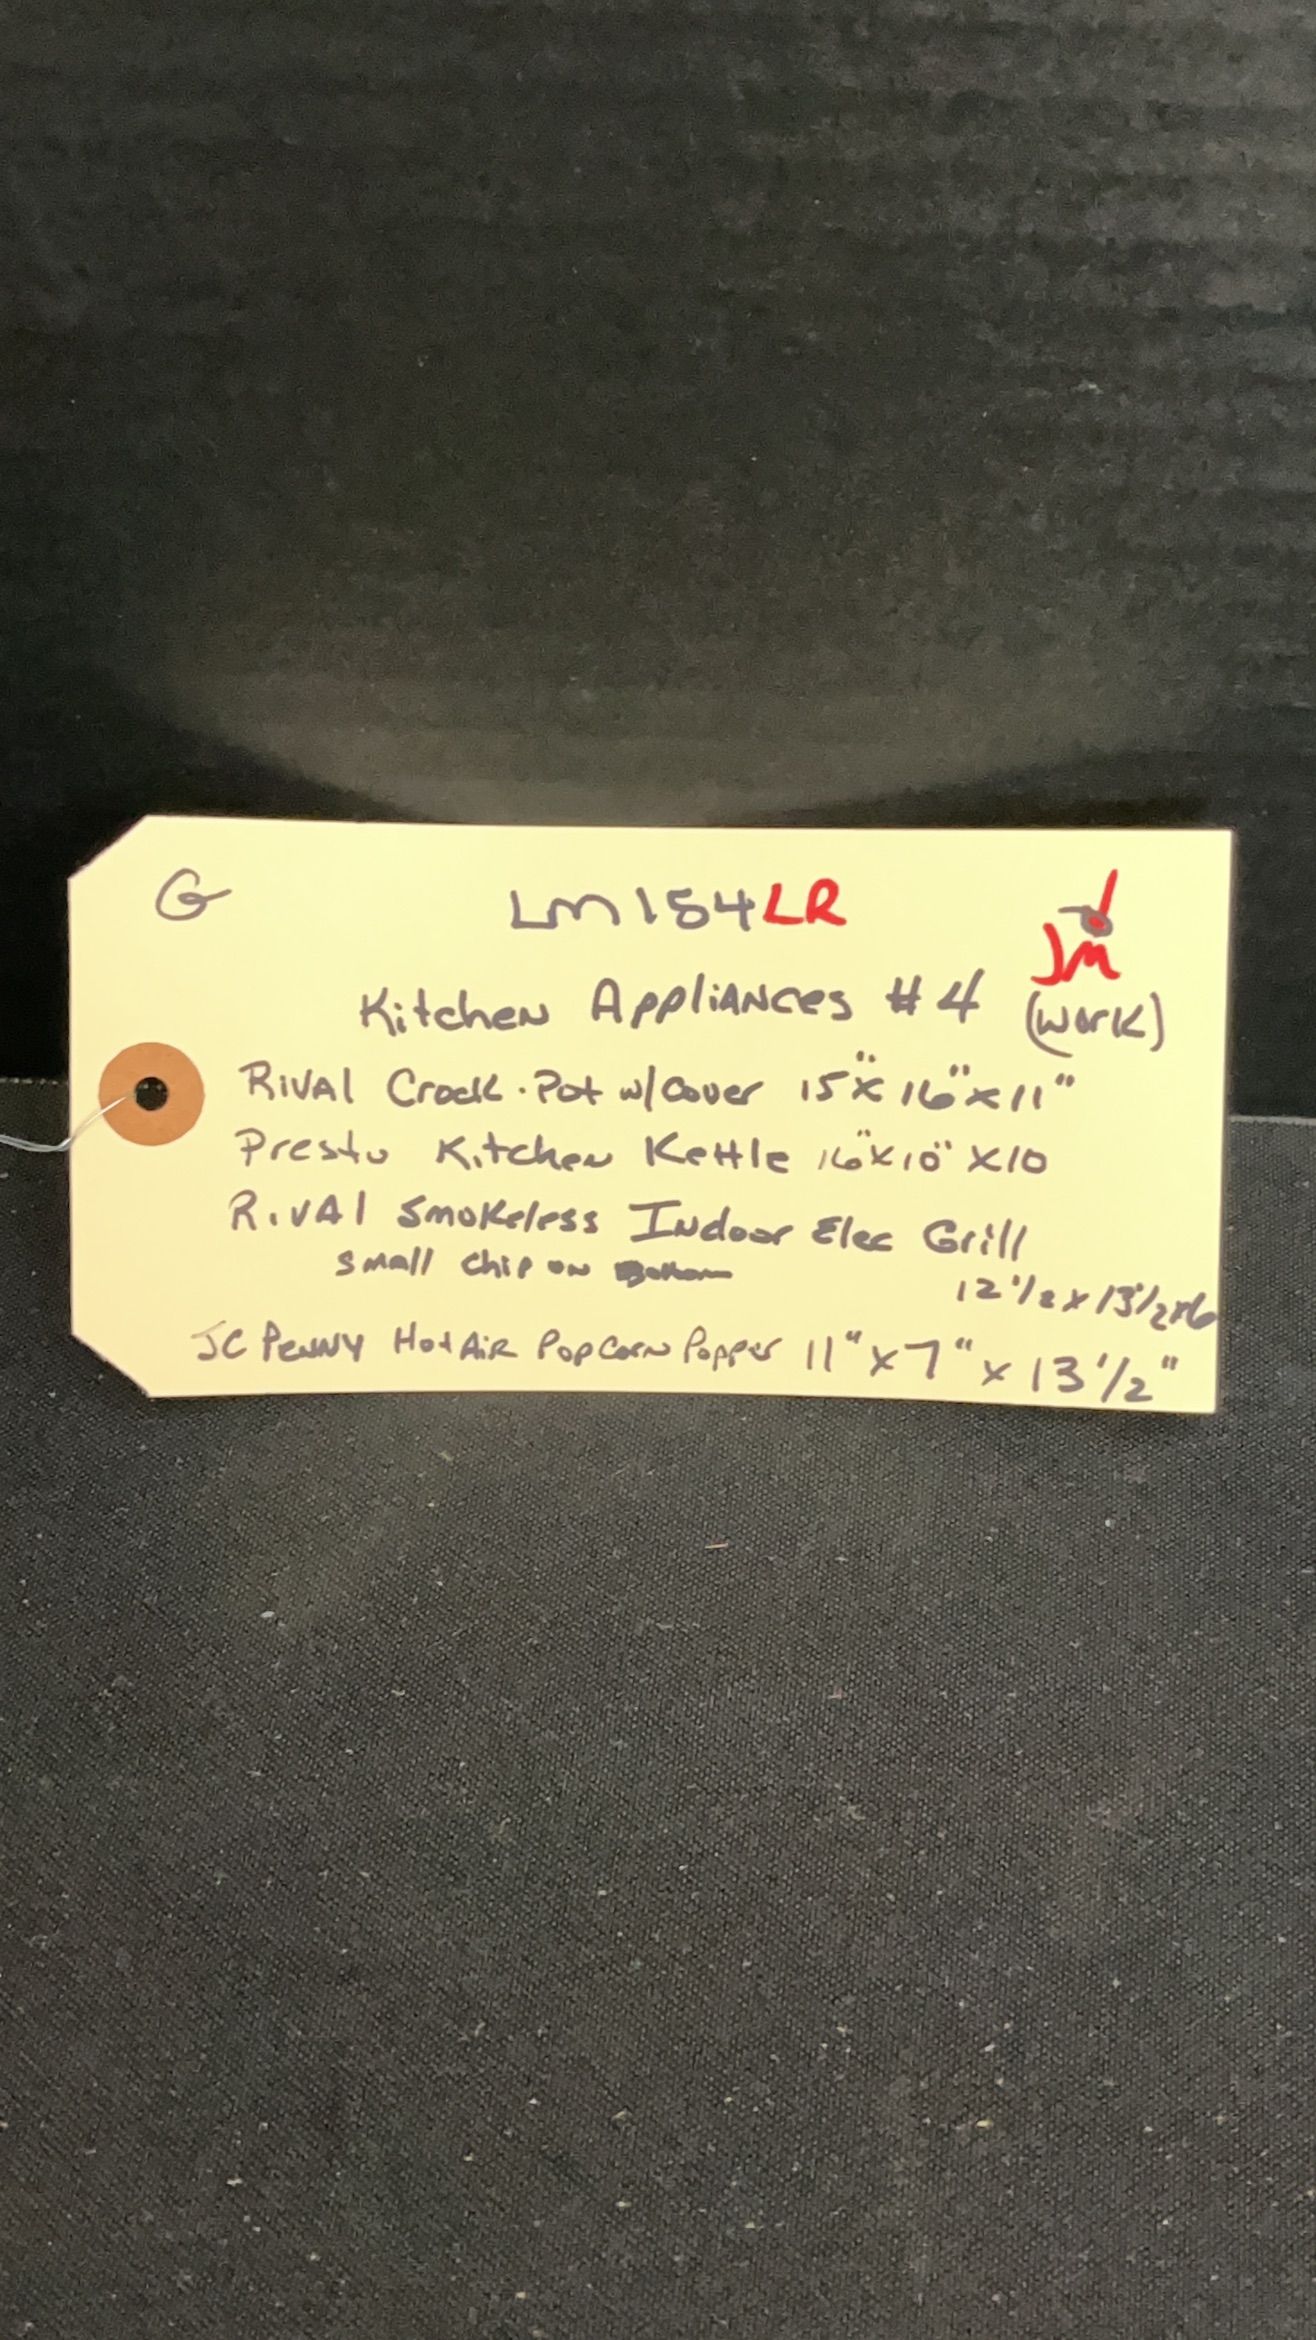 G LM154LR
JM
Kitchen Appliances #4 (work)
Rival Crock.Pot w/cover 15"x 16"x 11"
Presto Kitchen Kettle 16"x10" x10
Rival Smokeless Indoor Elec Grill
small chip on Bottom
12 1/2 x 13 1/2 x 6
JC Penny Hot Air PopCorn Popper 11" x 7" x 13 1/2"